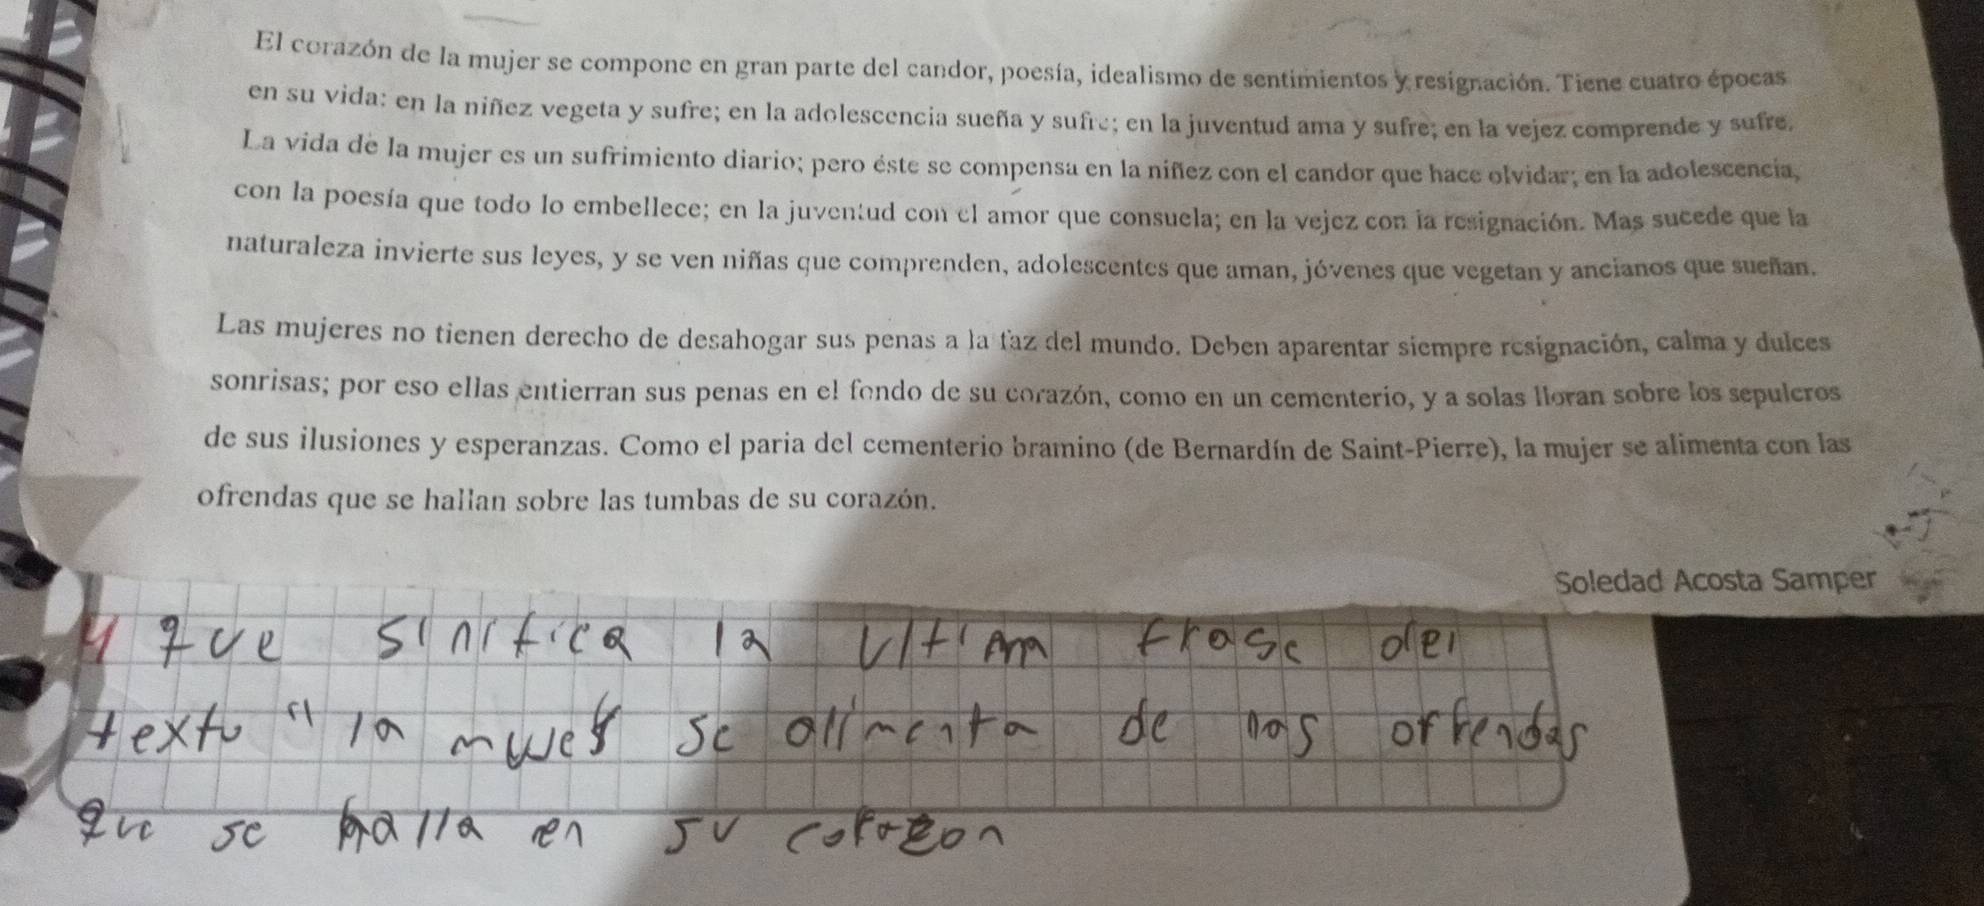 El corazón de la mujer se compone en gran parte del candor, poesía, idealismo de sentimientos y resignación. Tiene cuatro épocas
en su vida: en la niñez vegeta y sufre; en la adolescencia sueña y sufre; en la juventud ama y sufre; en la vejez comprende y sufre.
La vida de la mujer es un sufrimiento diario; pero éste se compensa en la niñez con el candor que hace olvidar; en la adolescencia,
con la poesía que todo lo embellece; en la juventud con el amor que consuela; en la vejez con la resignación. Mas sucede que la
naturaleza invierte sus leyes, y se ven niñas que comprenden, adolescentes que aman, jóvenes que vegetan y ancianos que sueñan.
Las mujeres no tienen derecho de desahogar sus penas a la faz del mundo. Deben aparentar siempre resignación, calma y dulces
sonrisas; por eso ellas entierran sus penas en el fondo de su corazón, como en un cementerio, y a solas lloran sobre los sepulcros
de sus ilusiones y esperanzas. Como el paria del cementerio bramino (de Bernardín de Saint-Pierre), la mujer se alimenta con las
ofrendas que se hallan sobre las tumbas de su corazón.
Soledad Acosta Samper
4 que sinifica la ultima frase del
texto "la muer se alimenta de las offendas
que se halla en su corazon